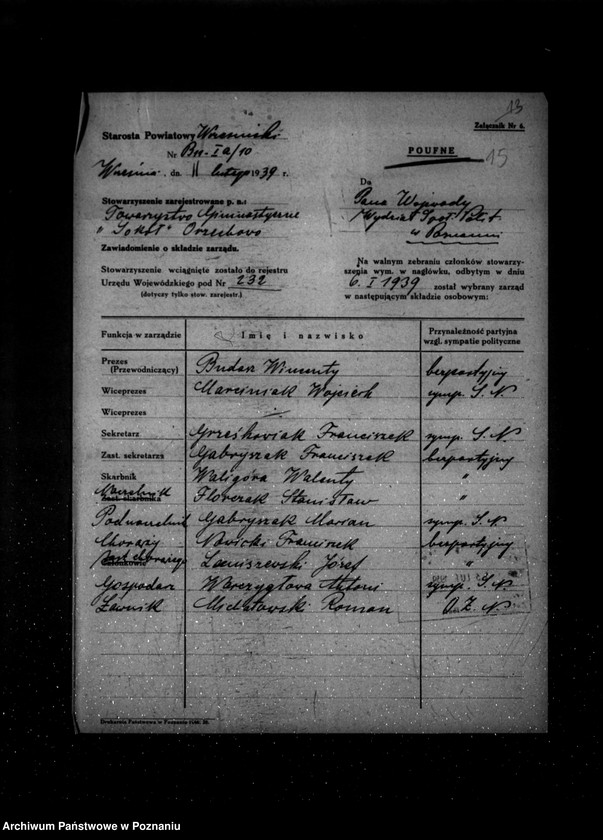 13
Załącznik Nr 6.
Starosta Powiatowy Wrzesiński
Nr Bn-Ia/10
Września, dn. 11 lutego 1939 r.
POUFNE
15
Do
Pana Wojewody
Wydział Społ. Polit
w Poznaniu
Stowarzyszenie zarejestrowane p. n.:
Towarzystwo Gimnastyczne
„Sokół" Orzechowo
Zawiadomienie o składzie zarządu.
Stowarzyszenie wciągnięte zostało do rejestru
Urzędu Wojewódzkiego pod Nr 232
(dotyczy tylko stow. zarejestr.)
Na walnym zebraniu członków stowarzy-
szenia wym. w nagłówku, odbytym w dniu
6. I 1939 został wybrany zarząd
w następującym składzie osobowym:
Funkcja w zarządzie Imię i nazwisko Przynależność partyjna
wzgl. sympatie polityczne
Prezes
(Przewodniczący) Budasz Wincenty bezpartyjny
Wiceprezes Marciniak Wojciech symp. S. N.
Wiceprezes —
Sekretarz Grześkowiak Franciszek symp. S. N.
Zast. sekretarza Gabryszak Franciszek bezpartyjny
Skarbnik Waligóra Walenty "
Naczelnik
Zast. skarbnika Florczak Stanisław "
Podnaczelnik Gabryszak Marian symp. S. N.
Chorąży Nowicki Franciszek bezpartyjny
zast. chorążego
Członkowie Józef "
Gospodarz Warzygłowa Antoni symp. S. N.
Ławnik Michałowski Roman O. Z. N
Drukarnia Państwowa w Poznaniu
Archiwum Państwowe w Poznaniu